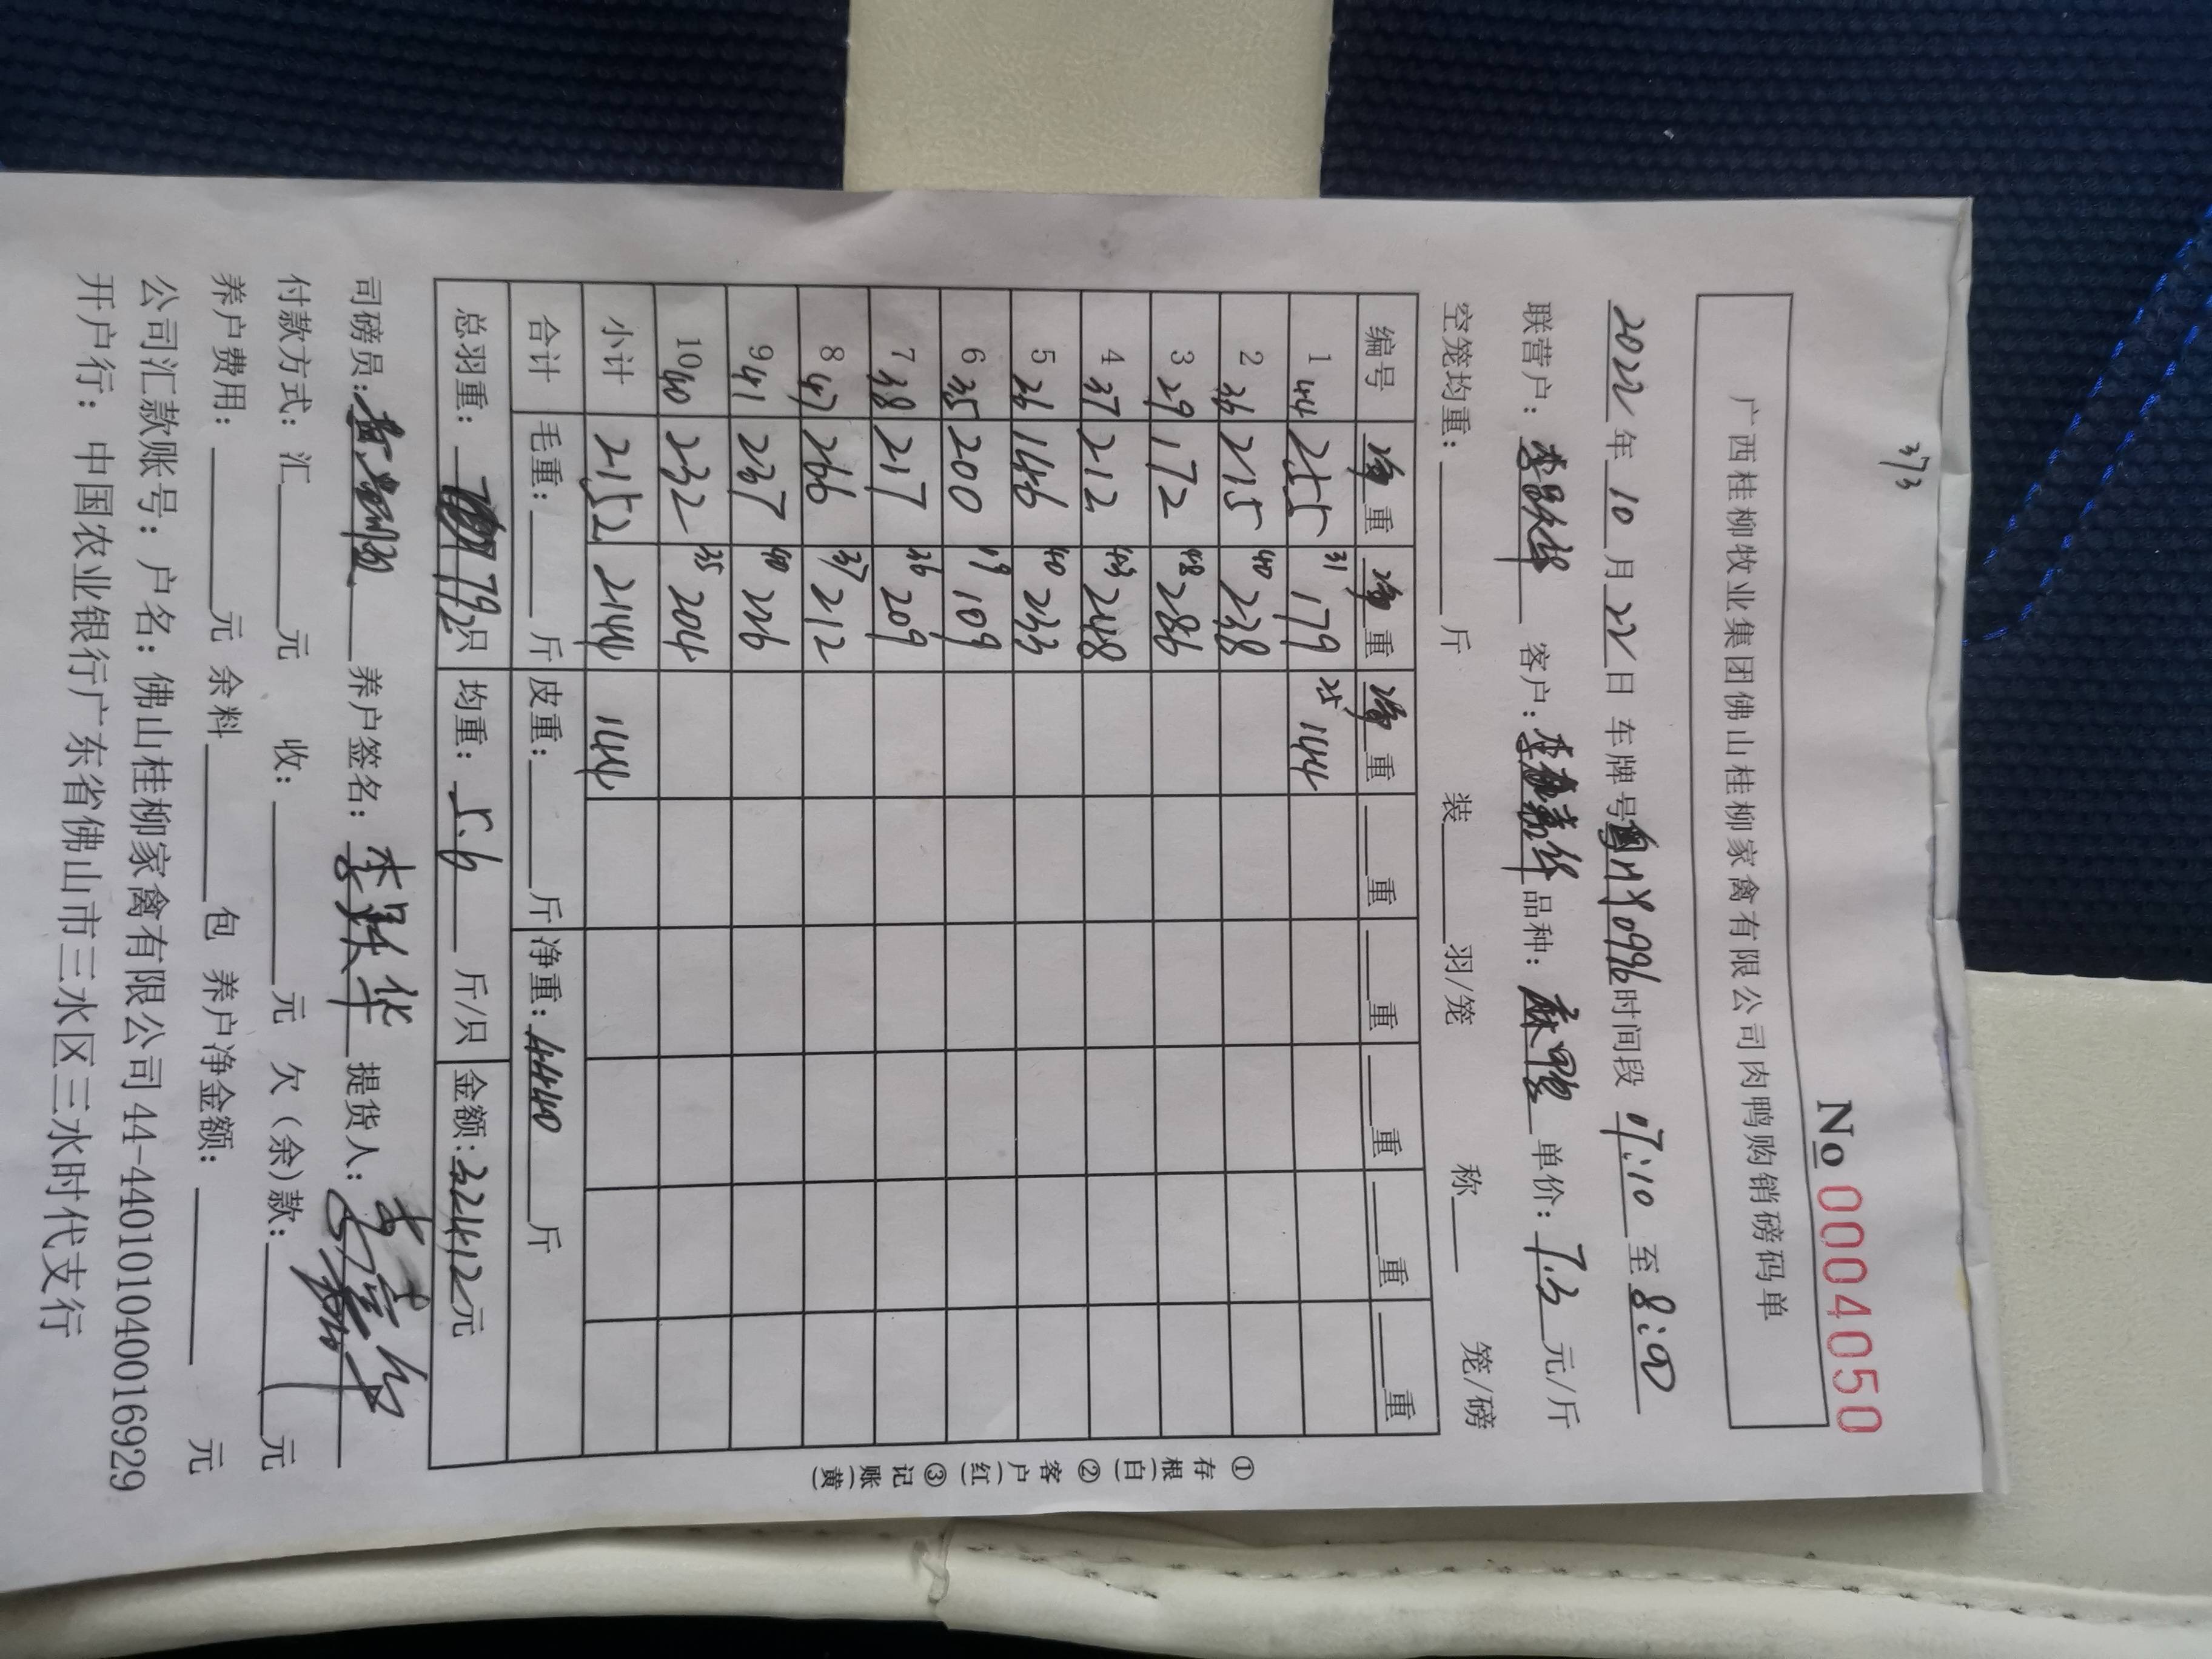 373
No 0004050
广西桂柳牧业集团佛山桂柳家禽有限公司肉鸭购销磅码单
2022年10月22日 车牌号 Y0996 时间段 17:10 至 8:00
联营户: 李 华 客户: 李 华 品种: 麻鸭 单价: 7.3 元/斤
空笼均重: 斤 装 羽/笼 称 笼/磅
编号 净重 净重 净重 重 重 重 重 重
1 44 255 31 179 25 144
2 36 215 40 238
3 29 172 48 286
4 37 212 43 248
5 26 146 40 233
6 35 200 19 109
7 38 217 36 209
8 47 266 37 212
9 41 237 40 226
10 40 232 35 204
小计 2152 2144 144
合计 毛重: 斤 皮重: 斤 净重: 4440 斤
总羽重: 792只 均重: 5.6 斤/只 金额: 32412元
司磅员: 养户签名: 李 华 提货人:
付款方式: 汇 元 收: 元 欠(余)款: 元
养户费用: 元 余料 包 养户净金额: 元
公司汇款账号: 户名: 佛山桂柳家禽有限公司 44-440101040016929
开户行: 中国农业银行广东省佛山市三水区三水时代支行
①存根(白)②客户(红)③记账(黄)